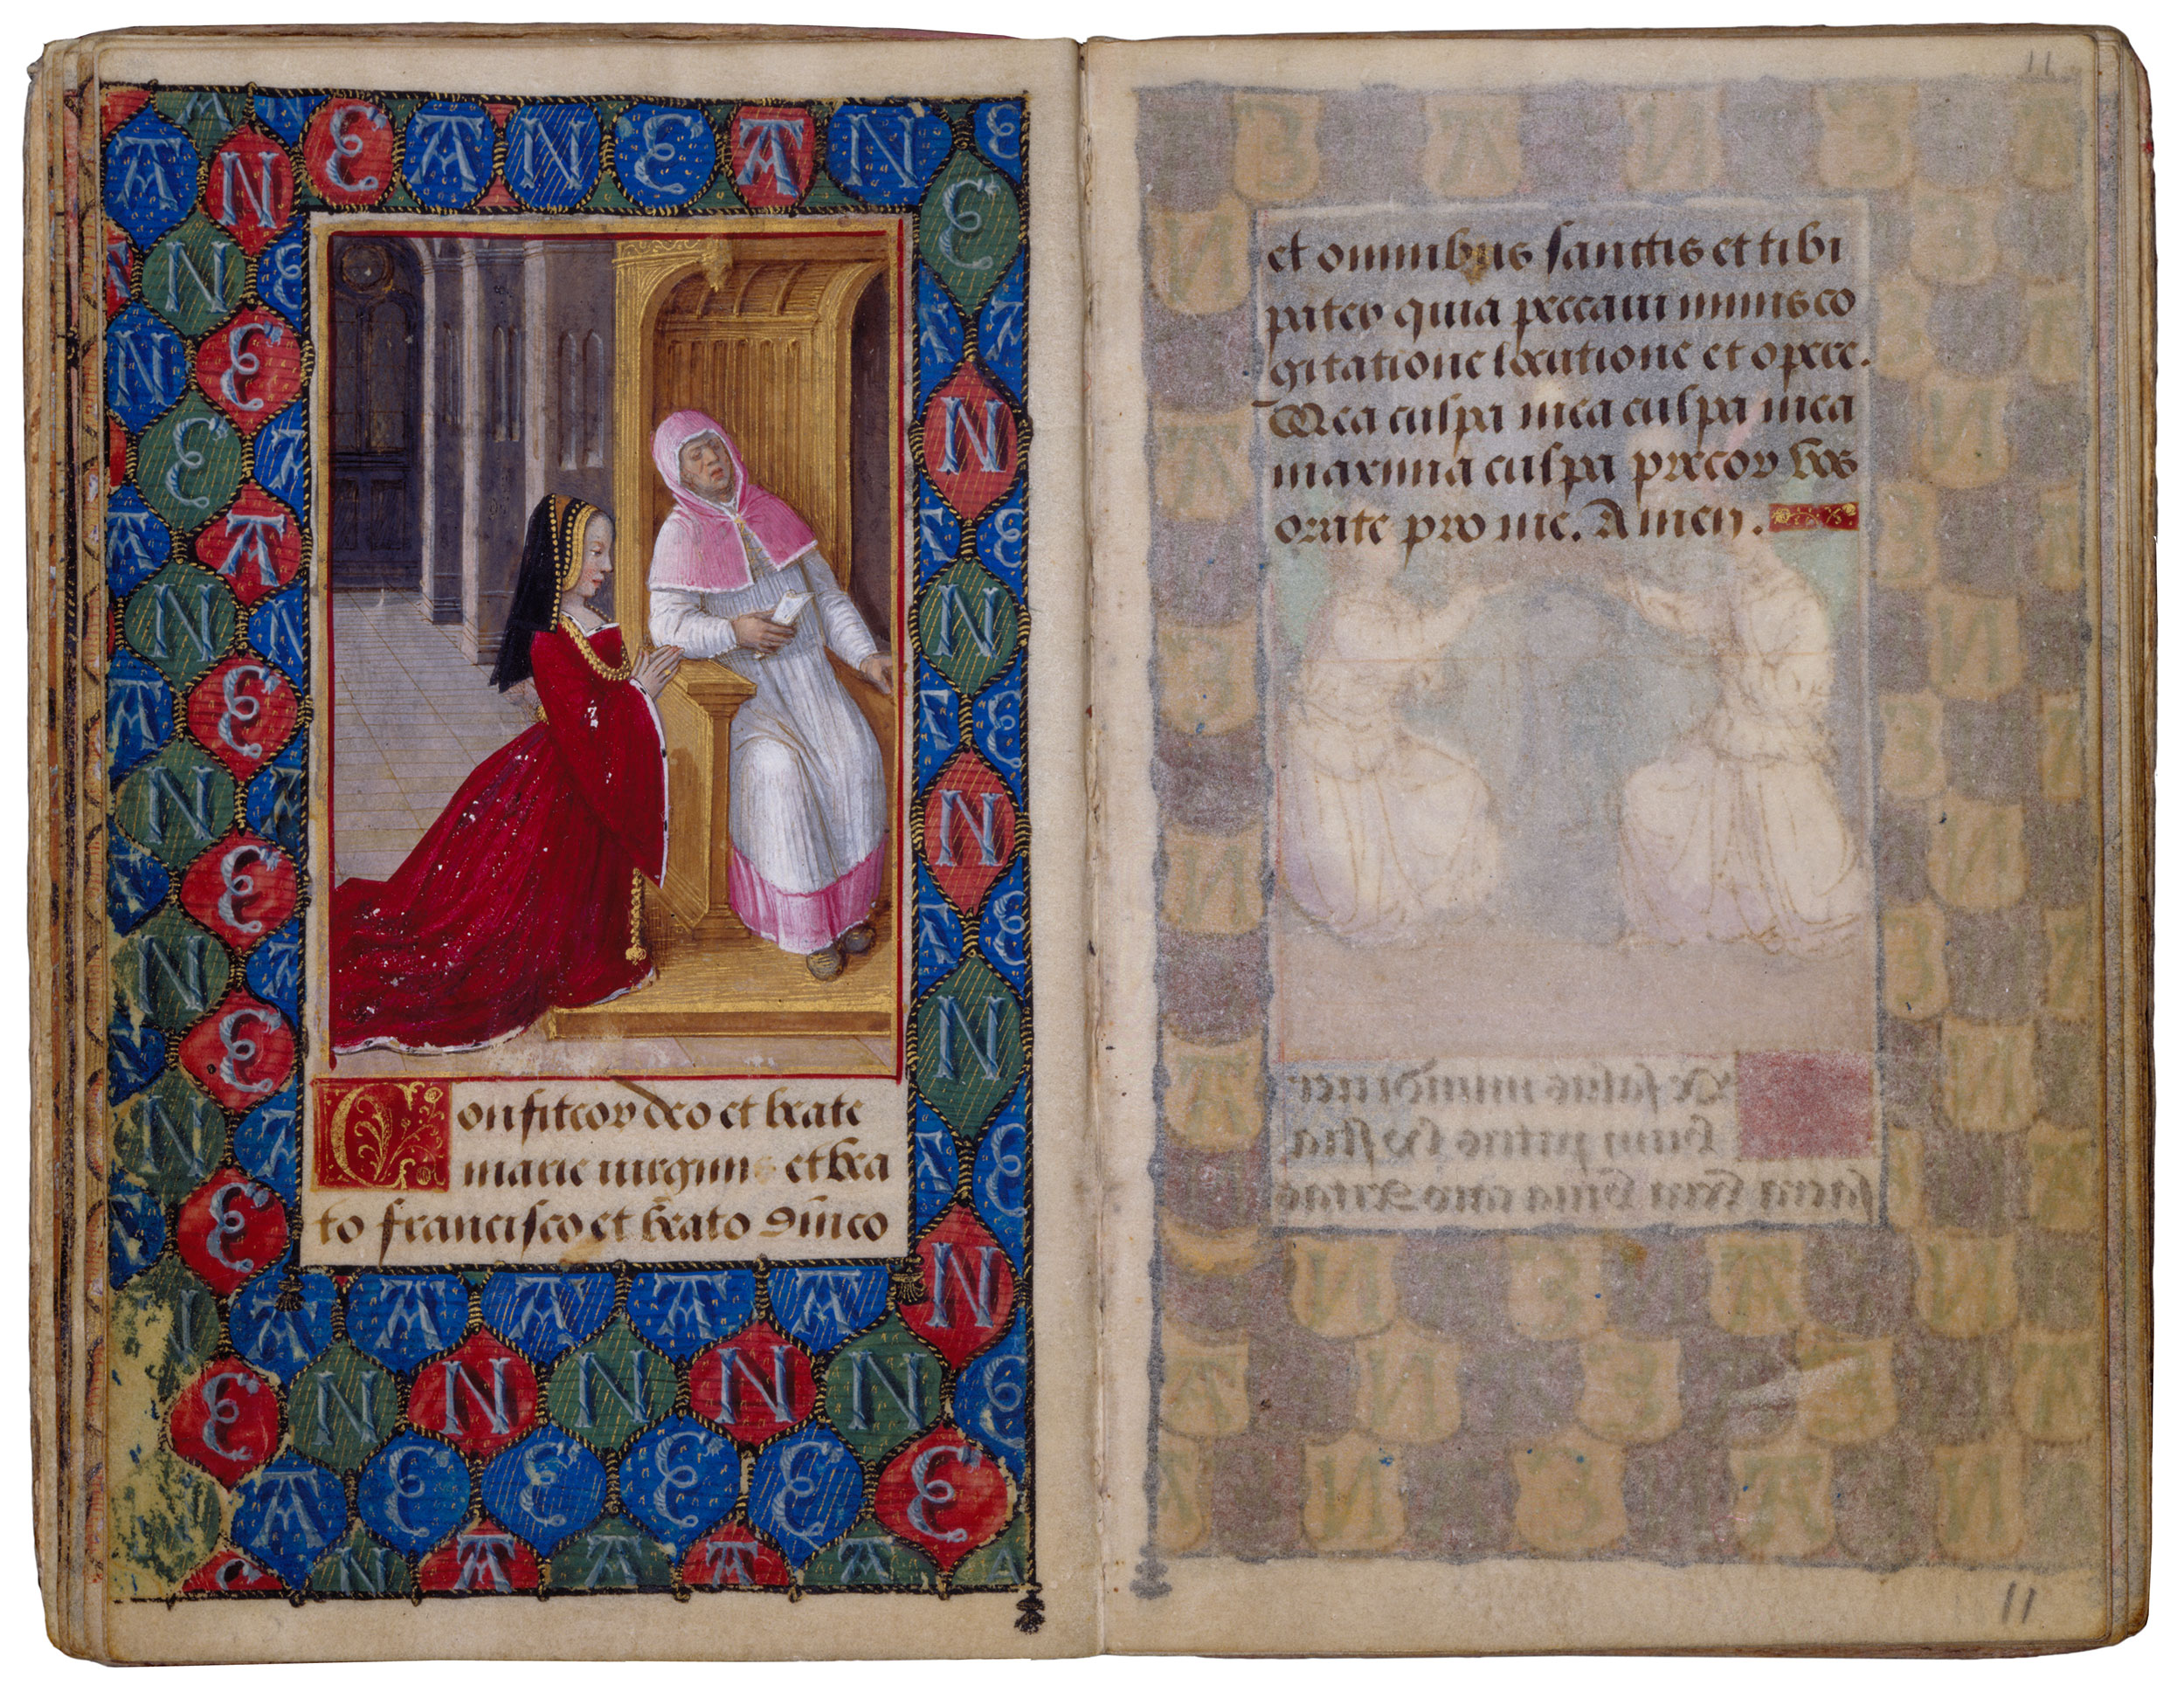 Confiteor deo et beate
marie virginis et bea
to francisco et b̄eato d̄nico
11
et omnibus sanctis et tibi
pater quia peccaui nimis co
gitatione locutione et opere.
Mea culpa mea culpa mea
maxima culpa precor vos
orate pro me. Amen.
11